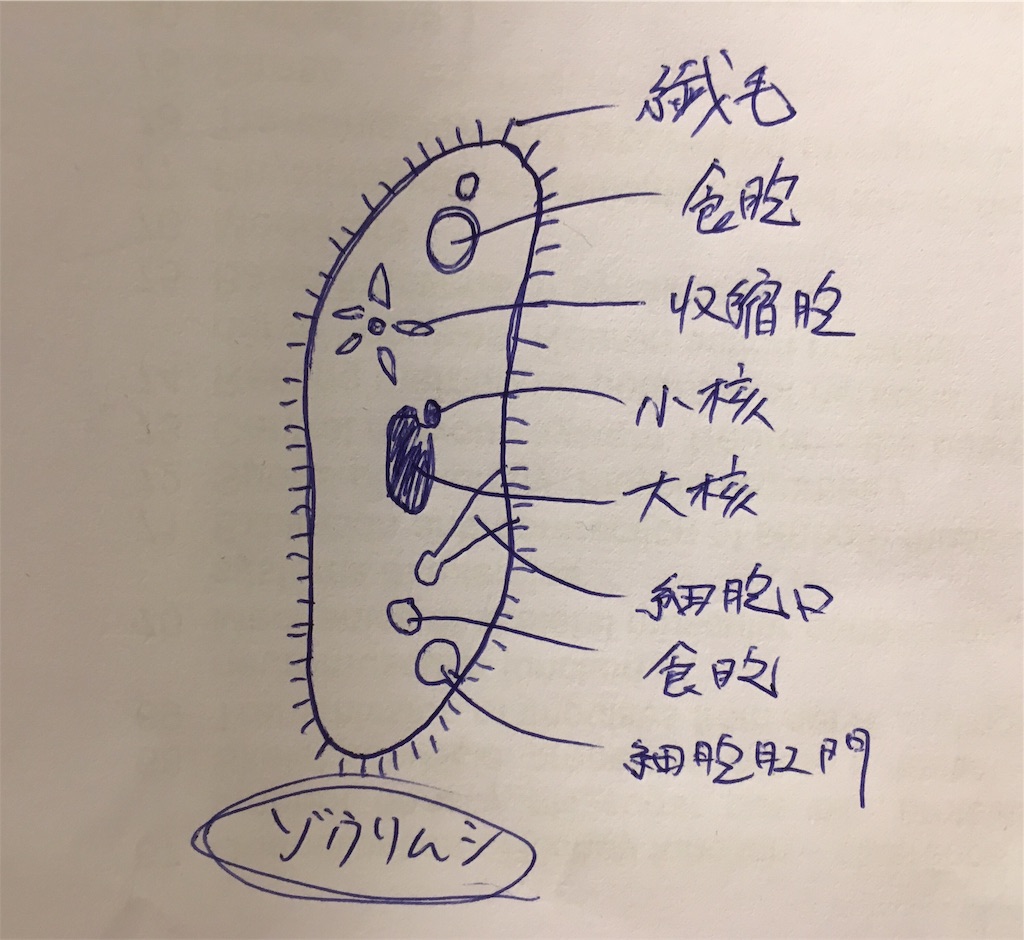 繊毛
食胞
収縮胞
小核
大核
細胞口
食胞
細胞肛門
ゾウリムシ